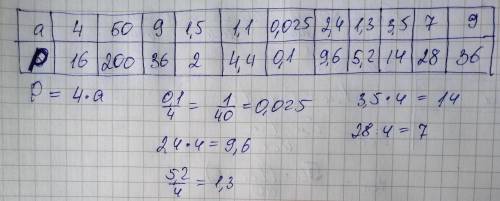 a 4 50 9 1,5 1,1 0,025 2,4 1,3 3,5 7 9
P 16 200 36 2 4,4 0,1 9,6 5,2 14 28 36
P = 4·a 0,1/4 = 1/40 = 0,025 3,5·4 = 14
2,4·4 = 9,6 28 4 = 7
5,2/4 = 1,3